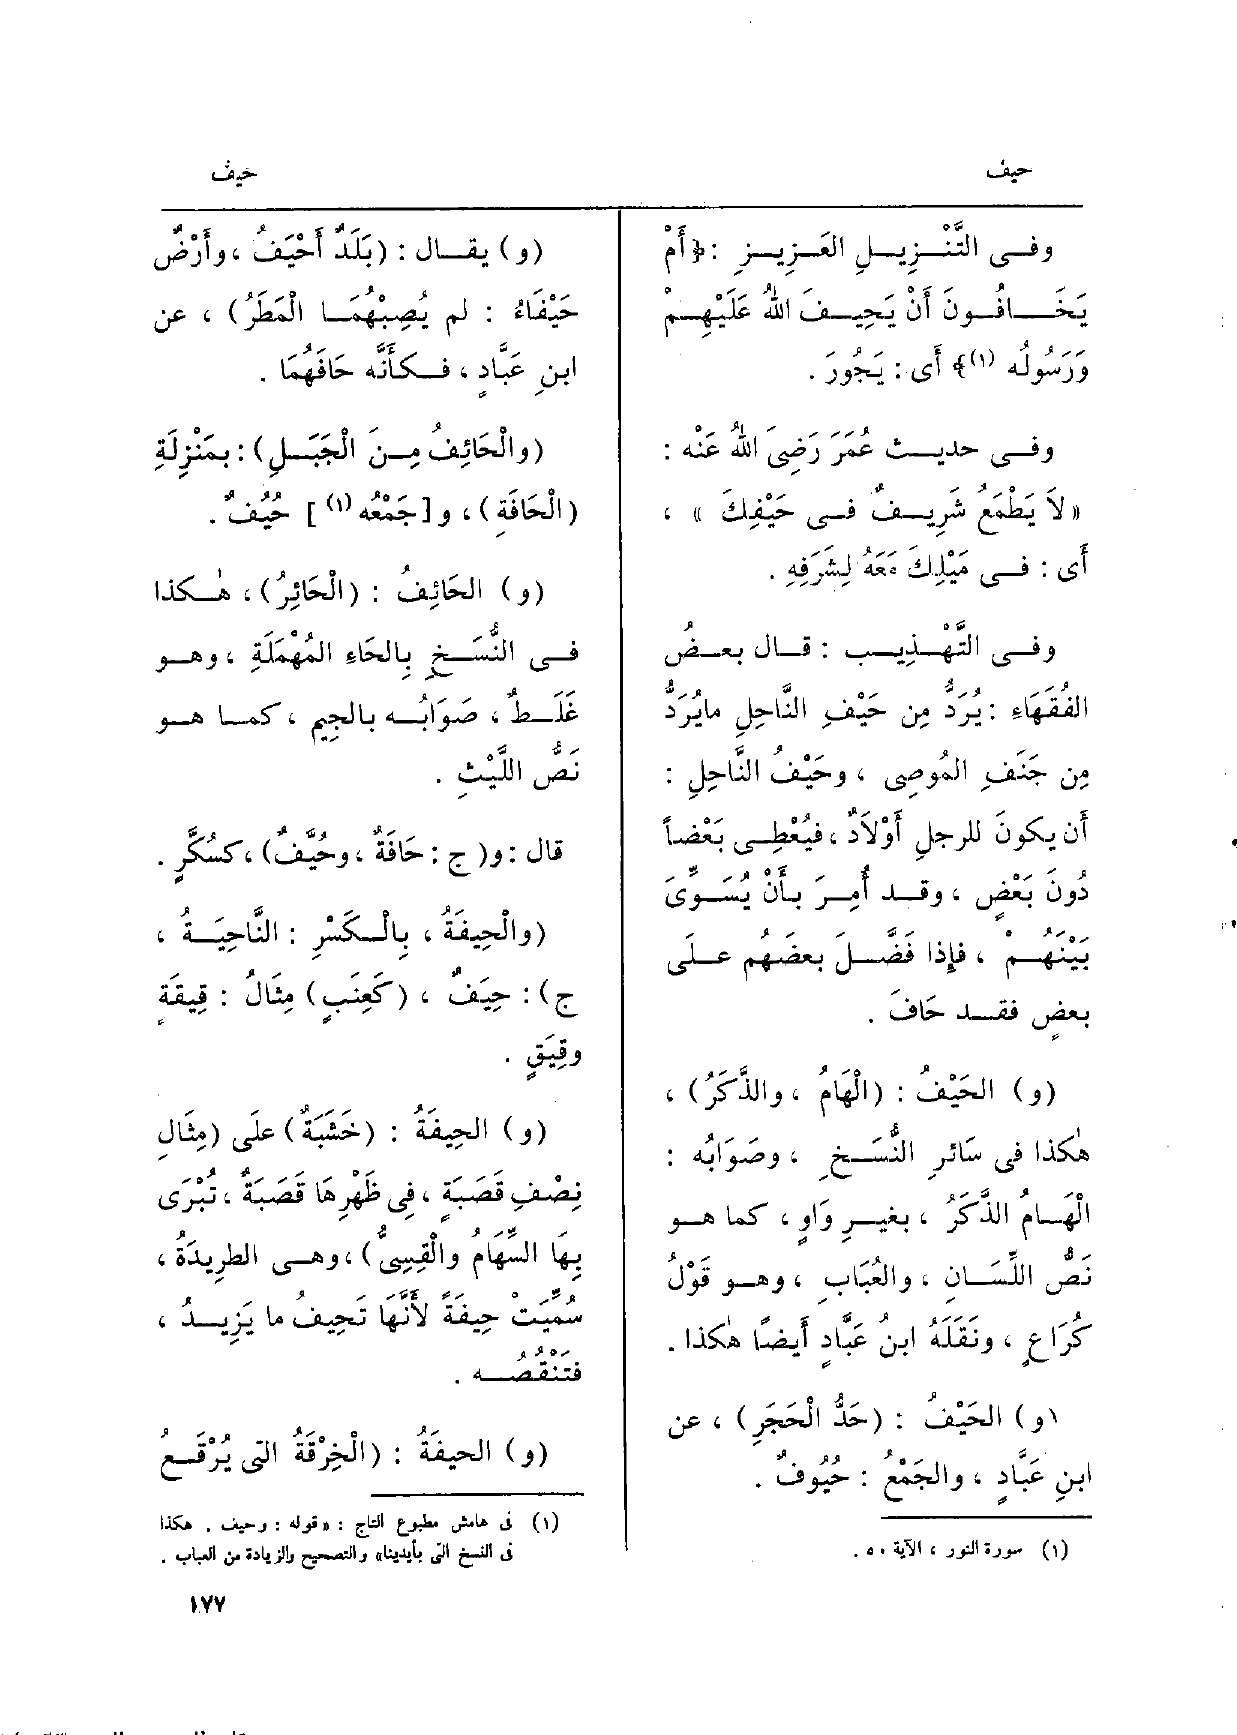 حيف
حيف
وفى التَّنْزِيلِ العَزِيزِ : ﴿أَمْ
يَخَافُونَ أَنْ يَحِيفَ اللهُ عَلَيْهِمْ
وَرَسُولُه (١)﴾ أَى : يَجُورَ .
وفى حديث عُمَرَ رَضِىَ اللهُ عَنْه :
«لاَ يَطْمَعُ شَرِيفٌ فى حَيْفِكَ » ،
أَى : فى مَيْلِكَ مَعَهُ لِشَرَفِهِ .
وفى التَّهْذِيب : قال بعضُ
الفُقَهَاءِ : يُرَدُّ مِن حَيْفِ النَّاحِلِ مايُرَدُّ
مِن جَنَفِ المُوصِى ، وحَيْفُ النَّاحِلِ :
أَن يكونَ للرجلِ أَوْلاَدٌ ، فيُعْطِى بَعْضاً
دُونَ بَعْضٍ ، وقد أُمِرَ بأَنْ يُسَوِّىَ
بَيْنَهُمْ ، فإِذا فَضَّلَ بعضَهُم على
بعضٍ فقد حَافَ .
(و) الحَيْفُ : (الْهَامُ ، والذَّكَرُ) ،
هٰكذا فى سَائرِ النُّسَخِ ، وصَوَابُه :
الْهَامُ الذَّكَرُ ، بغيرِ وَاوٍ ، كما هو
نَصُّ اللِّسَانِ ، والعُبَابِ ، وهو قَوْلُ
كُرَاعٍ ، ونَقَلَهُ ابنُ عَبَّادٍ أَيضًا هٰكذا .
(و) الحَيْفُ : (حَدُّ الْحَجَرِ) ، عن
ابنِ عَبَّادٍ ، والجَمْعُ : حُيُوفٌ .
(١) سورة النور ، الآية ٥٠ .
(و) يقال : (بَلَدٌ أَحْيَفُ ، وأَرْضٌ
حَيْفَاءُ : لم يُصِبْهُمَا الْمَطَرُ) ، عن
ابنِ عَبَّادٍ ، فكأَنَّه حَافَهُمَا .
(والْحَائِفُ مِنَ الْجَبَلِ) : بمَنْزِلَةِ
(الْحَافَةِ) ، و [جَمْعُه (١) ] حُيُفٌ .
(و) الحَائِفُ : (الْحَائِرُ) ، هٰكذا
فى النُّسَخِ بِالحَاءِ المُهْمَلَةِ ، وهو
غَلَطٌ ، صَوَابُه بالجيمِ ، كما هو
نَصُّ اللَّيْثِ .
قال : و(ج : حَافَةٌ ، وحُيَّفٌ) ، كسُكَّرٍ .
(والْحِيفَةُ ، بِالْكَسْرِ : النَّاحِيَةُ ،
ج) : حِيَفٌ ، (كَعِنَبٍ) مِثَالُ : قِيقَةٍ
وقِيَقٍ .
(و) الحِيفَةُ : (خَشَبَةٌ) علَى (مِثَالِ
نِصْفِ قَصَبَةٍ ، فِى ظَهْرِهَا قَصَبَةٌ ، تُبْرَى
بِهَا السِّهَامُ والْقِسِىُّ) ، وهى الطرِيدَةُ ،
سُمِّيَتْ حِيفَةً لأَنَّهَا تَحِيفُ ما يَزِيدُ ،
فتَنْقُصُه .
(و) الحيفَةُ : (الْخِرْقَةُ التى يُرْقَعُ
(١) فى هامش مطبوع التاج : «قوله : وحيف . هكذا
فى النسخ التى بأيدينا» والتصحيح والزيادة من العباب .
١٧٧